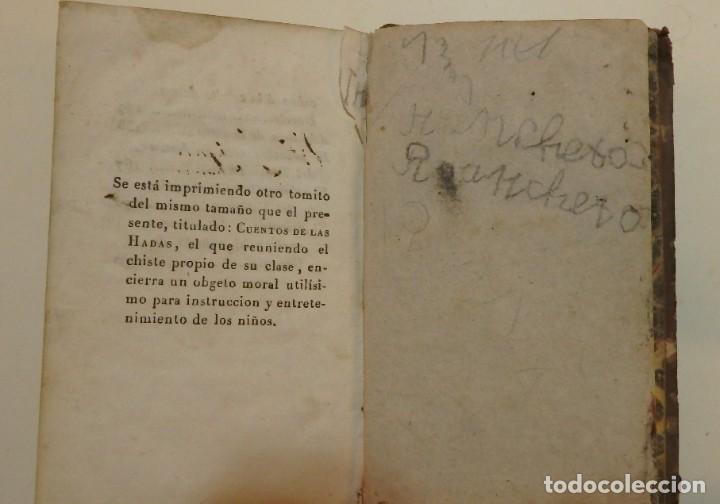 Se está imprimiendo otro tomito
del mismo tamaño que el pre-
sente, titulado: CUENTOS DE LAS
HADAS, el que reuniendo el
chiste propio de su clase, en-
cierra un obgeto moral utilísi-
mo para instruccion y entrete-
nimiento de los niños.
todocoleccion